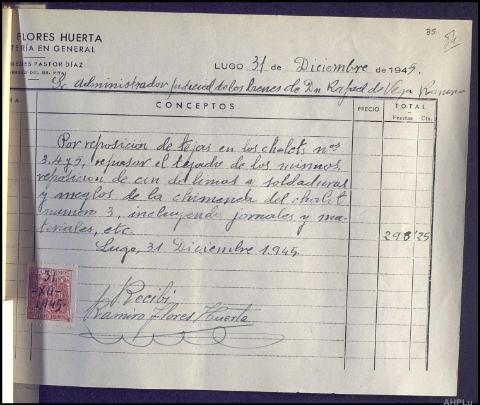 FLORES HUERTA
TERÍA EN GENERAL
MEDES PASTOR DÍAZ
LUGO 31 de Diciembre de 1945.
35
Sr. administrador judicial de los bienes de Dn Rafael de Vega
HA CONCEPTOS PRECIO TOTAL
Pesetas Cts.
Por reposición de tejas en los chalets nos
3, 4 y 5, repasar el tejado de los mismos
reposición de cin de limas a soldaduras
y arreglos de la chimenea del chalet
numero 3, incluyendo jornales y ma-
teriales, etc. 298'25
Lugo, 31 Diciembre 1.945.
31
-XII-
1945
Recibí
Ramiro Flores Huerta
AHPLu